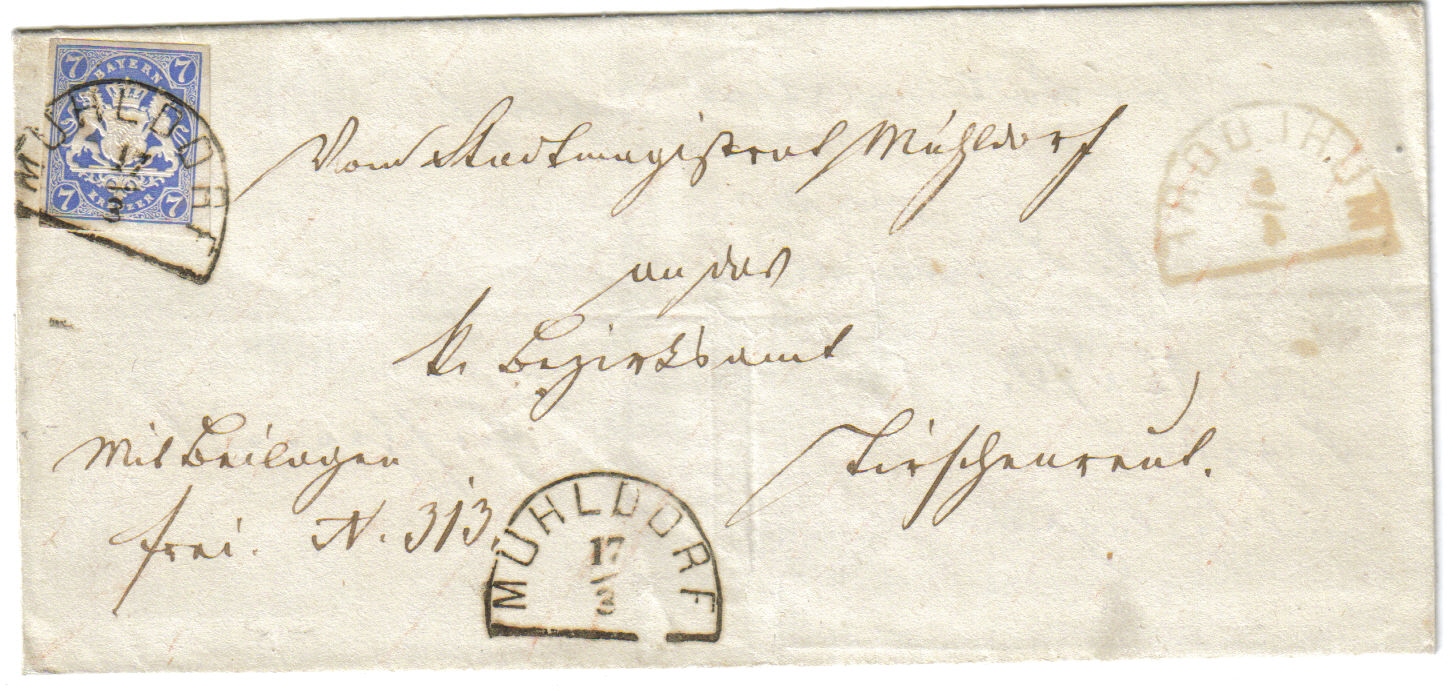 7 7
BAYERN
MÜHLDORF
17
3
KREUZER
7 7
Vom Stadtmagistrat Mühldorf
an das
k. Bezirksamt
Tirschenreut.
Mit Beilagen
frei. N. 313.
MÜHLDORF
17
3